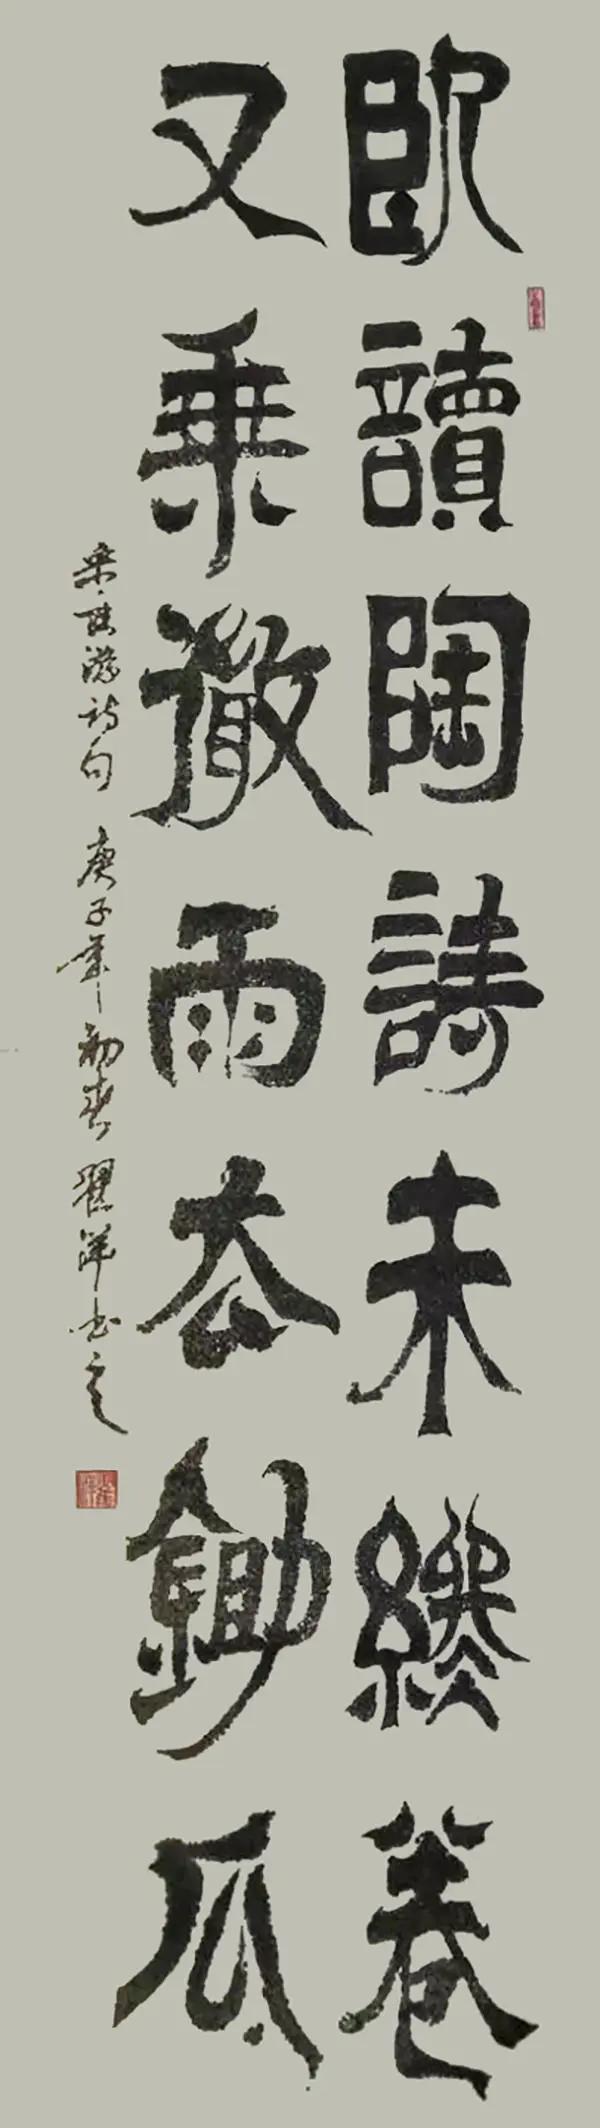 臥讀陶詩未終卷
又乘微雨去鋤瓜
宋·陆游诗句 庚子年初春 翟洋书之